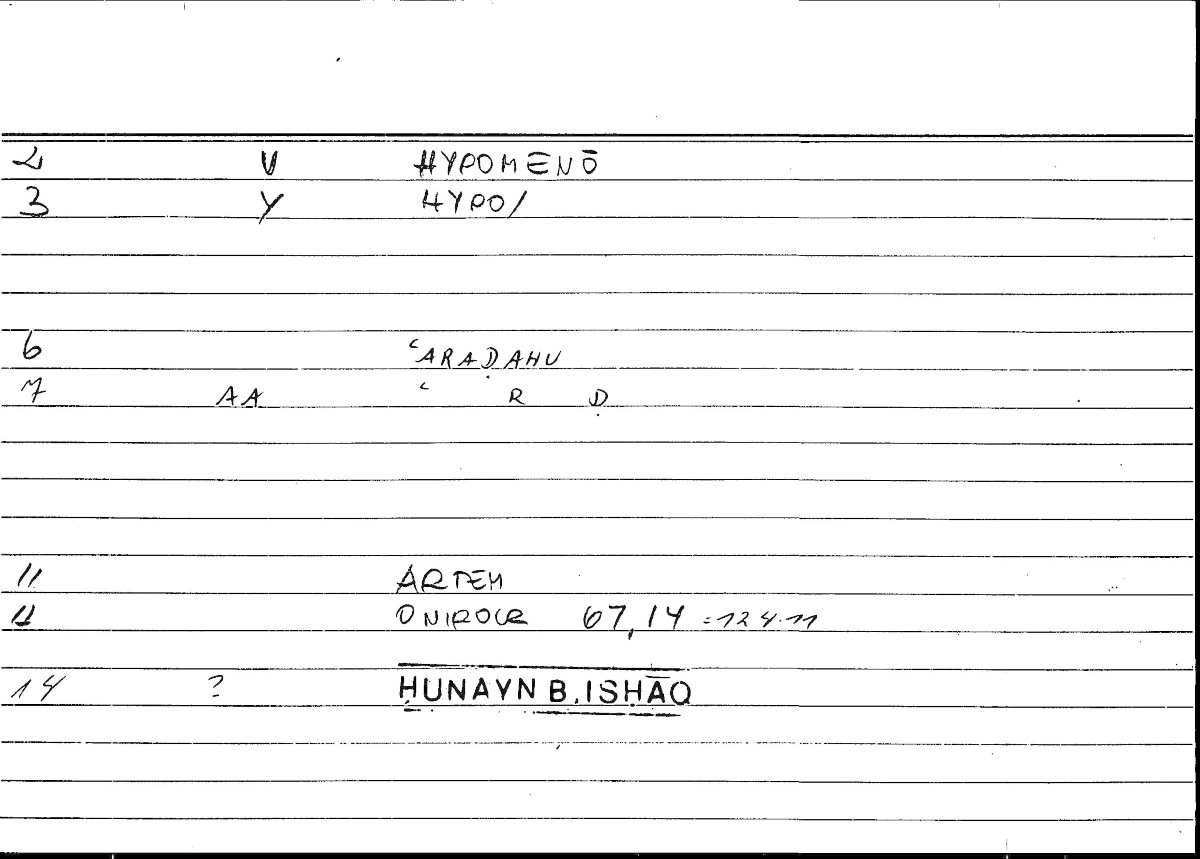 2 V HYPOMENŌ
3 Y HYPO/
6 ʿARAḌAHU
7 AA ʿ R Ḍ
11 ARTEM
12 ONIROCR 67,14 = 124.11
14 ? ḤUNAYN B. ISḤĀQ